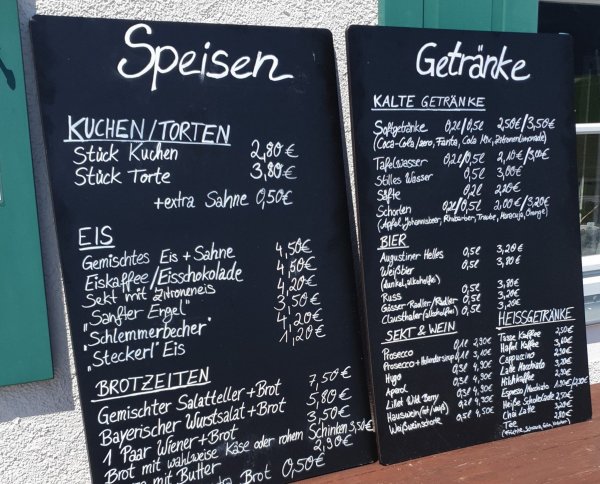 Speisen
KUCHEN/TORTEN
Stück Kuchen 2,80€
Stück Torte 3,80€
+extra Sahne 0,50€
EIS
Gemischtes Eis + Sahne 4,50€
Eiskaffee/Eisschokolade 4,50€
Sekt mit Zitroneneis 4,20€
"Sanfter Engel" 3,50€
"Schlemmerbecher" 4,20€
"Steckerl" Eis 1,20€
BROTZEITEN
Gemischter Salatteller + Brot 7,50€
Bayerischer Wurstsalat + Brot 5,80€
1 Paar Wiener + Brot 3,50€
Brot mit wahlweise Käse oder rohem Schinken 3,50€
mit Butter 2,90€
Brot 0,50€
Getränke
KALTE GETRÄNKE
Softgetränke 0,2l/0,5l 2,50€/3,50€
(Coca-Cola/zero, Fanta, Cola Mix, Zitronenlimonade)
Tafelwasser 0,2l/0,5l 2,10€/3,00€
Stilles Wasser 0,5l 3,00€
Säfte 0,2l 2,20€
Schorlen 0,2l/0,5l 2,00€/3,20€
(Apfel, Johannisbeer, Rhabarber, Traube, Maracuja, Orange)
BIER
Augustiner Helles 0,5l 3,20€
Weißbier 0,5l 3,80€
(dunkel, alkoholfrei)
Russ 0,5l 3,80€
Gösser-Radler/Radler 0,5l 3,20€
Clausthaler (alkoholfrei) 0,5l 3,20€
SEKT & WEIN
Prosecco 0,1l 2,90€
Prosecco + Holundersirup 0,1l 3,10€
Hugo 0,3l 4,30€
Aperol 0,3l 4,90€
Lillet Wild Berry 0,3l 4,90€
Hauswein (rot/weiß)
Weißweinschorle 0,5l 4,50€
HEISSGETRÄNKE
Tasse Kaffee 2,50€
Haferl Kaffee 3,20€
Cappuccino
Latte Macchiato
Milchkaffee
Espresso/Macchiato
Heiße Schokolade
Chai Latte
Tee